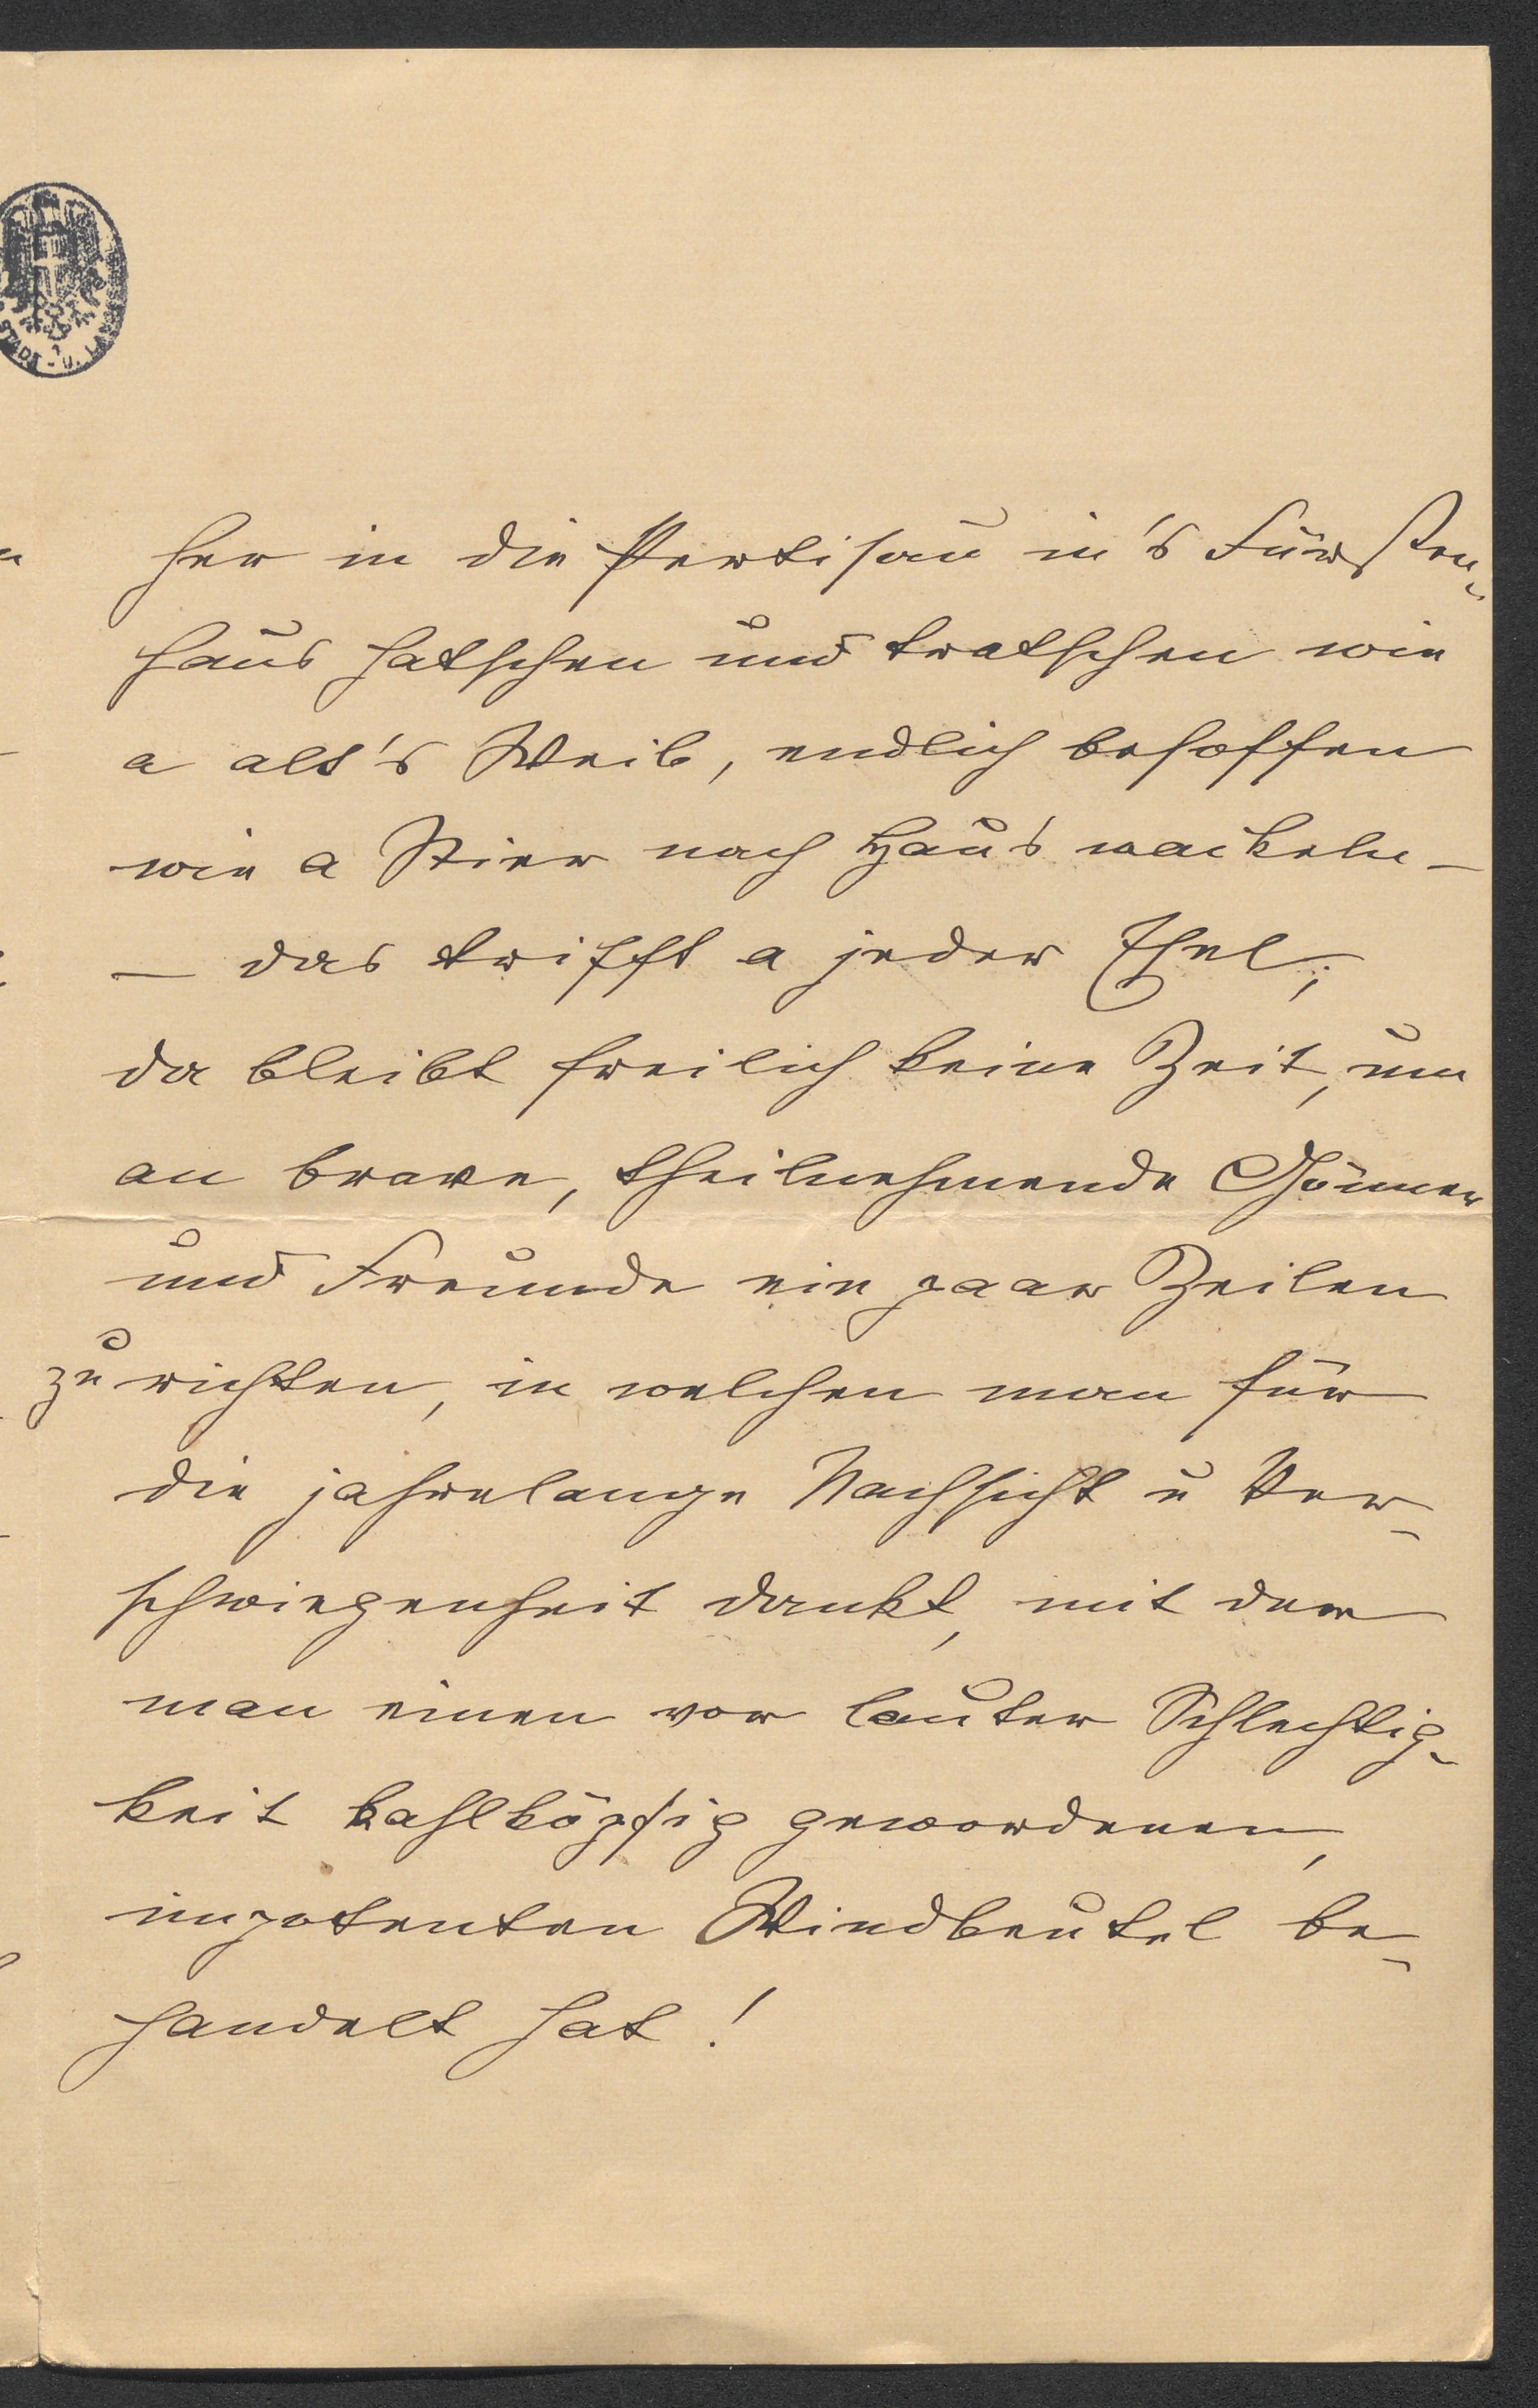 STADT- U. LA
her in die Pertisau in's Fürsten-
haus hatschen und tratschen wie
a alt's Weib, endlich besoffen
wie a Stier nach Haus wackeln –
– das trifft a jeder Esel;
da bleibt freilich keine Zeit, um
an brave, theilnehmende Gönner
und Freunde ein paar Zeilen
zu richten, in welchen man für
die jahrelange Nachsicht u Ver-
schwiegenheit dankt, mit der
man einen vor lauter Schlechtig-
keit kahlköpfig gewordenen,
impotenten Windbeutel be-
handelt hat!